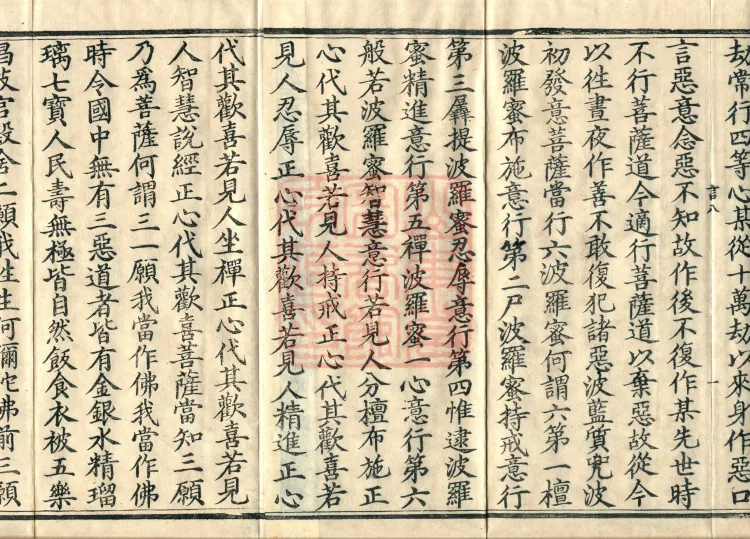 劫常行四等心某從十萬劫以來身作惡口
言惡意念惡不知故作後不復作某先世時
不行菩薩道今適行菩薩道以棄惡故從今
以徃晝夜作善不敢復犯諸惡波藍質兜波
初發意菩薩當行六波羅蜜何謂六第一檀
波羅蜜布施意行第二尸波羅蜜持戒意行
第三羼提波羅蜜忍辱意行第四惟逮波羅
蜜精進意行第五禪波羅蜜一心意行第六
般若波羅蜜智慧意行若見人分檀布施正
心代其歡喜若見人持戒正心代其歡喜若
見人忍辱正心代其歡喜若見人精進正心
代其歡喜若見人坐禪正心代其歡喜若見
人智慧說經正心代其歡喜菩薩當知三願
乃爲菩薩何謂三一願我當作佛我當作佛
時令國中無有三惡道者皆有金銀水精瑠
璃七寶人民壽無極皆自然飯食衣被五樂
昌妓宮殿舍二願我徃生阿彌陀佛前三願
言八
一